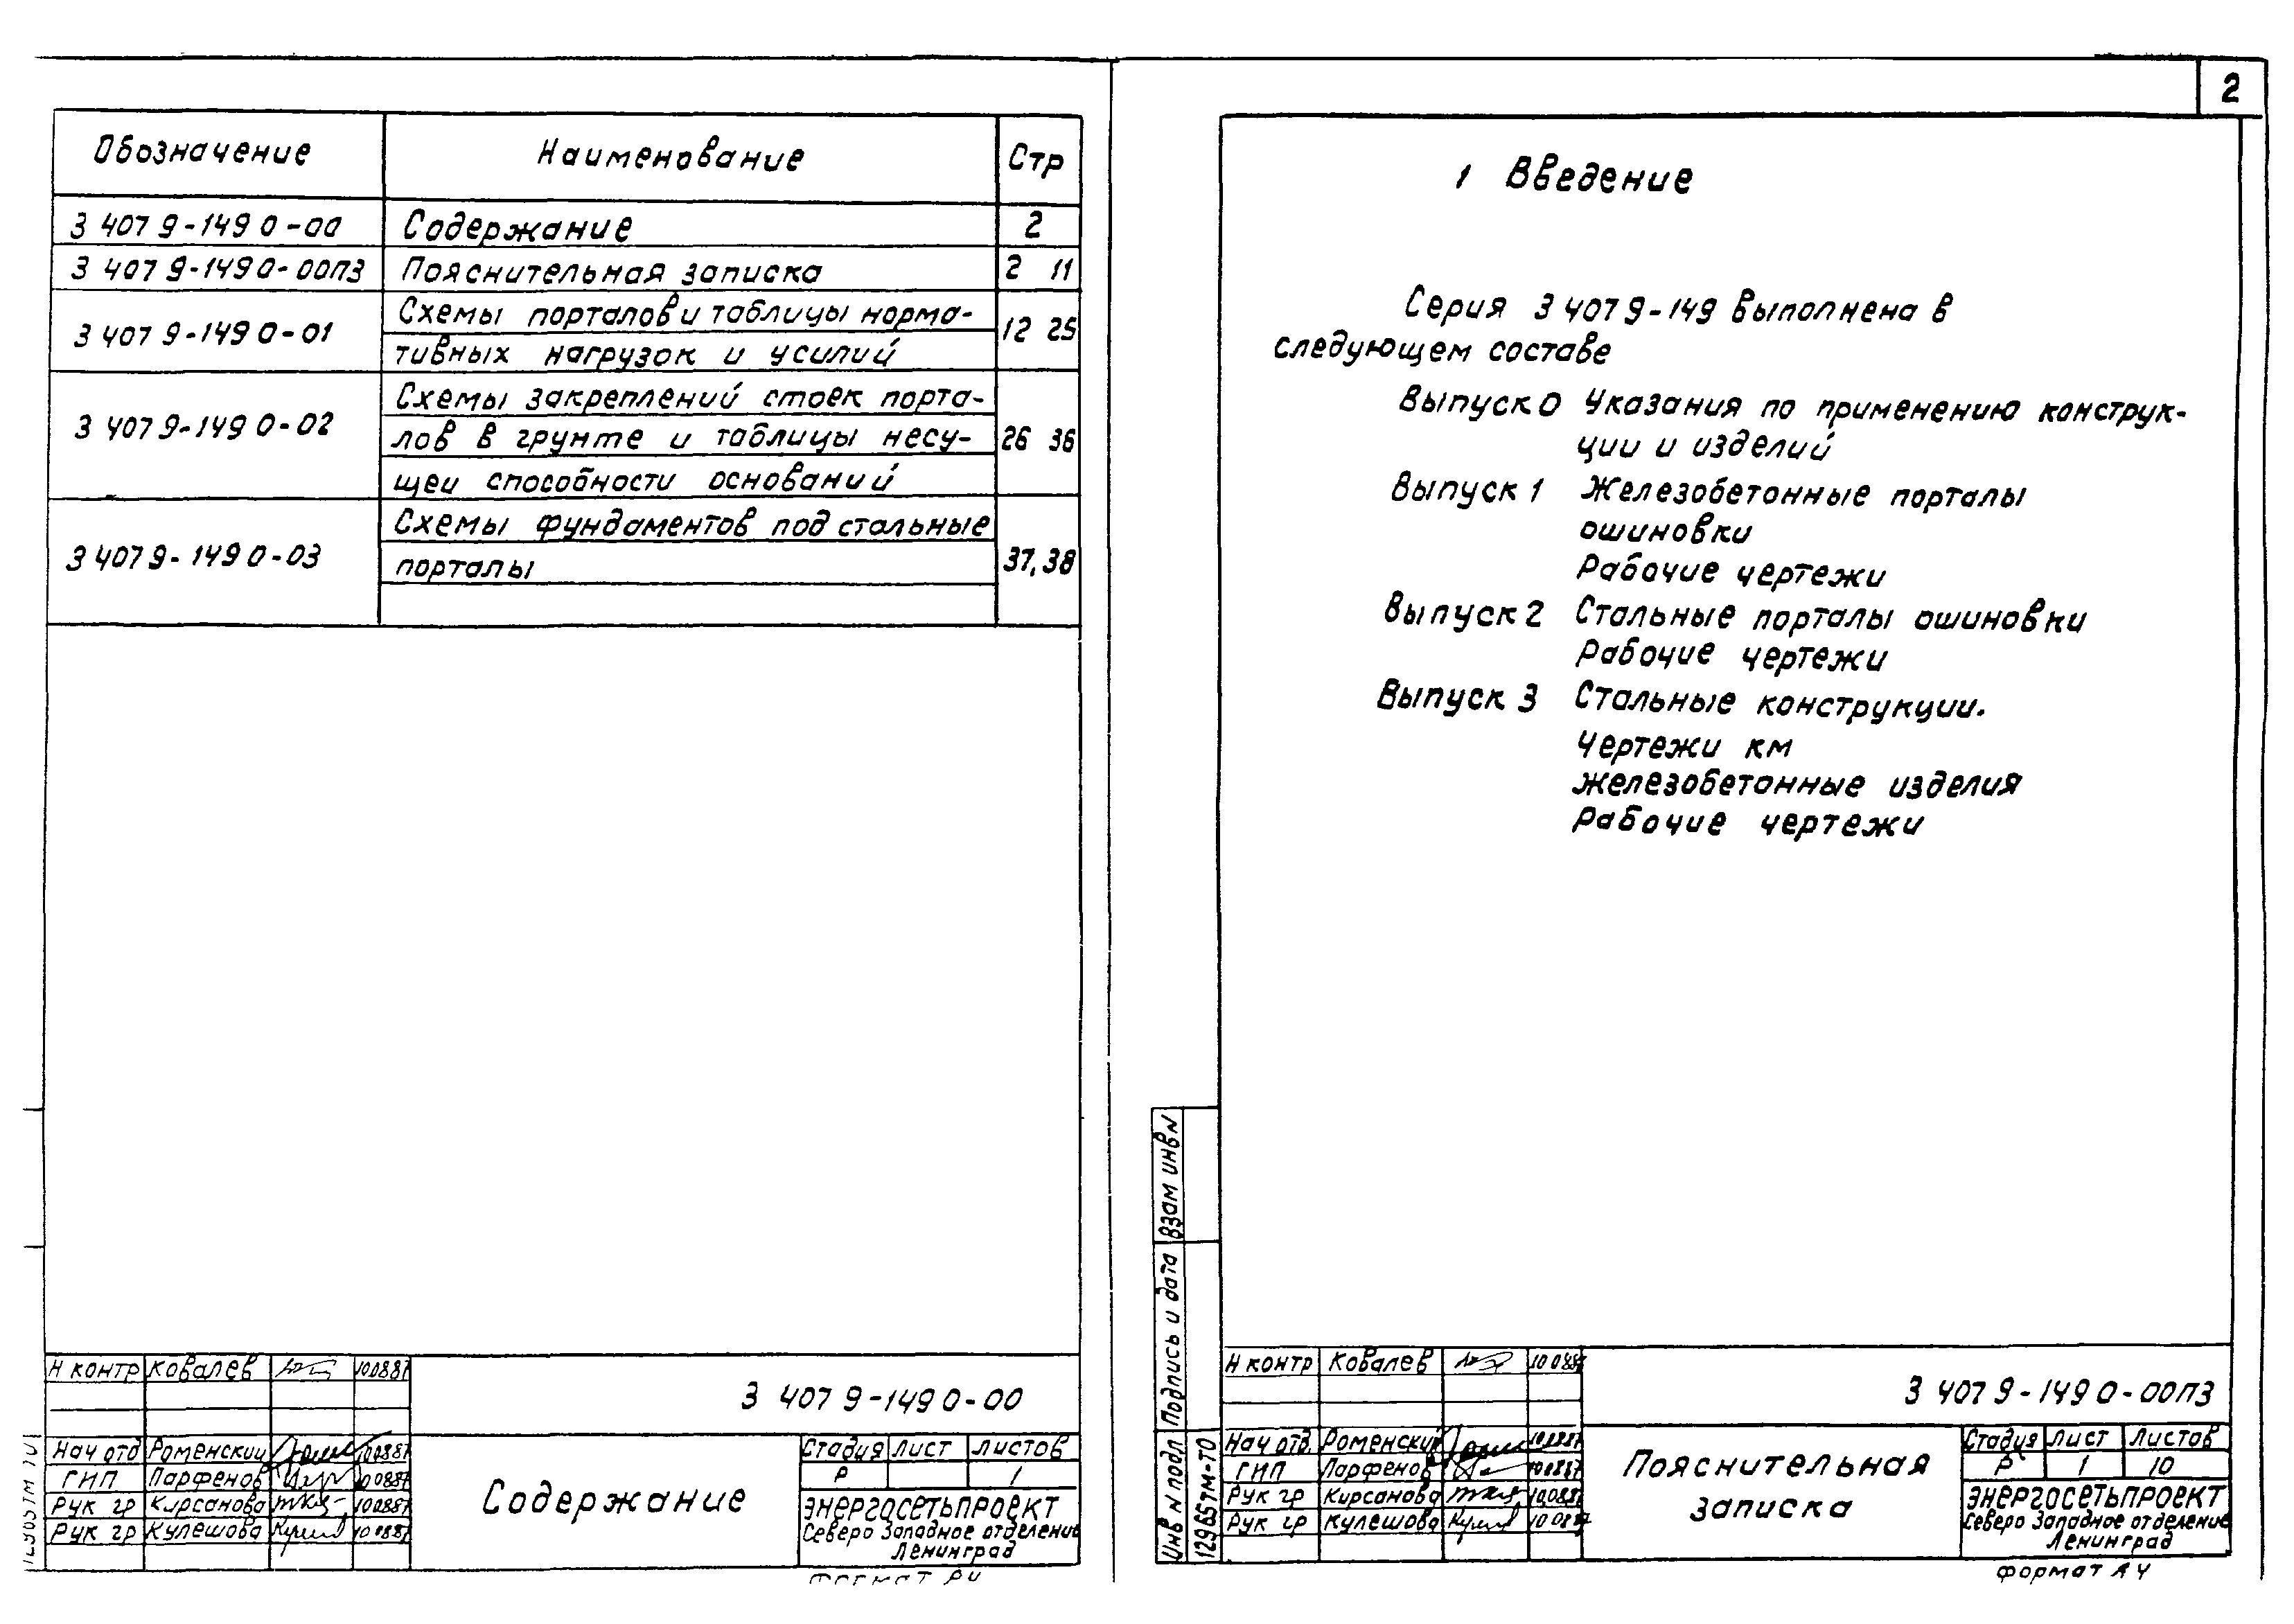 Обозначение Наименование Стр
3 407 9-149 0-00 Содержание 2
3 407 9-149 0-00ПЗ Пояснительная записка 2 11
3 407 9-149 0-01 Схемы порталов и таблицы норма- 12 25
тивных нагрузок и усилий
3 407 9-149 0-02 Схемы закреплений стоек порта- 26 36
лов в грунте и таблицы несу-
щеи способности оснований
3 407 9-149 0-03 Схемы фундаментов под стальные 37,38
порталы
Н контр Ковалев 10.08.87
3 407 9-149 0-00
Нач отд Роменский 10.08.87
ГИП Парфенов 10.08.87
Рук гр Кирсанова 10.08.87
Рук гр Кулешова 10.08.87
Содержание
Стадия Лист Листов
Р 1
ЭНЕРГОСЕТЬПРОЕКТ
Северо Западное отделение
Ленинград
2
1 Введение
Серия 3 407 9-149 выполнена в
следующем составе
Выпуск 0 Указания по применению конструк-
ции и изделий
Выпуск 1 Железобетонные порталы
ошиновки
Рабочие чертежи
Выпуск 2 Стальные порталы ошиновки
Рабочие чертежи
Выпуск 3 Стальные конструкции.
Чертежи км
железобетонные изделия
Рабочие чертежи
Взам инв N
Подпись и дата
Инв N подл
12965тм-т0
Н контр Ковалев 10 08 87
3 407 9-149 0-00ПЗ
Нач отд. Роменский 10.08.87
ГИП Парфенов 10.08.87
Рук гр Кирсанова 10.08.87
Рук гр Кулешова 10 08 87
Пояснительная
записка
Стадия Лист Листов
Р 1 10
ЭНЕРГОСЕТЬПРОЕКТ
Северо Западное отделение
Ленинград
формат А4